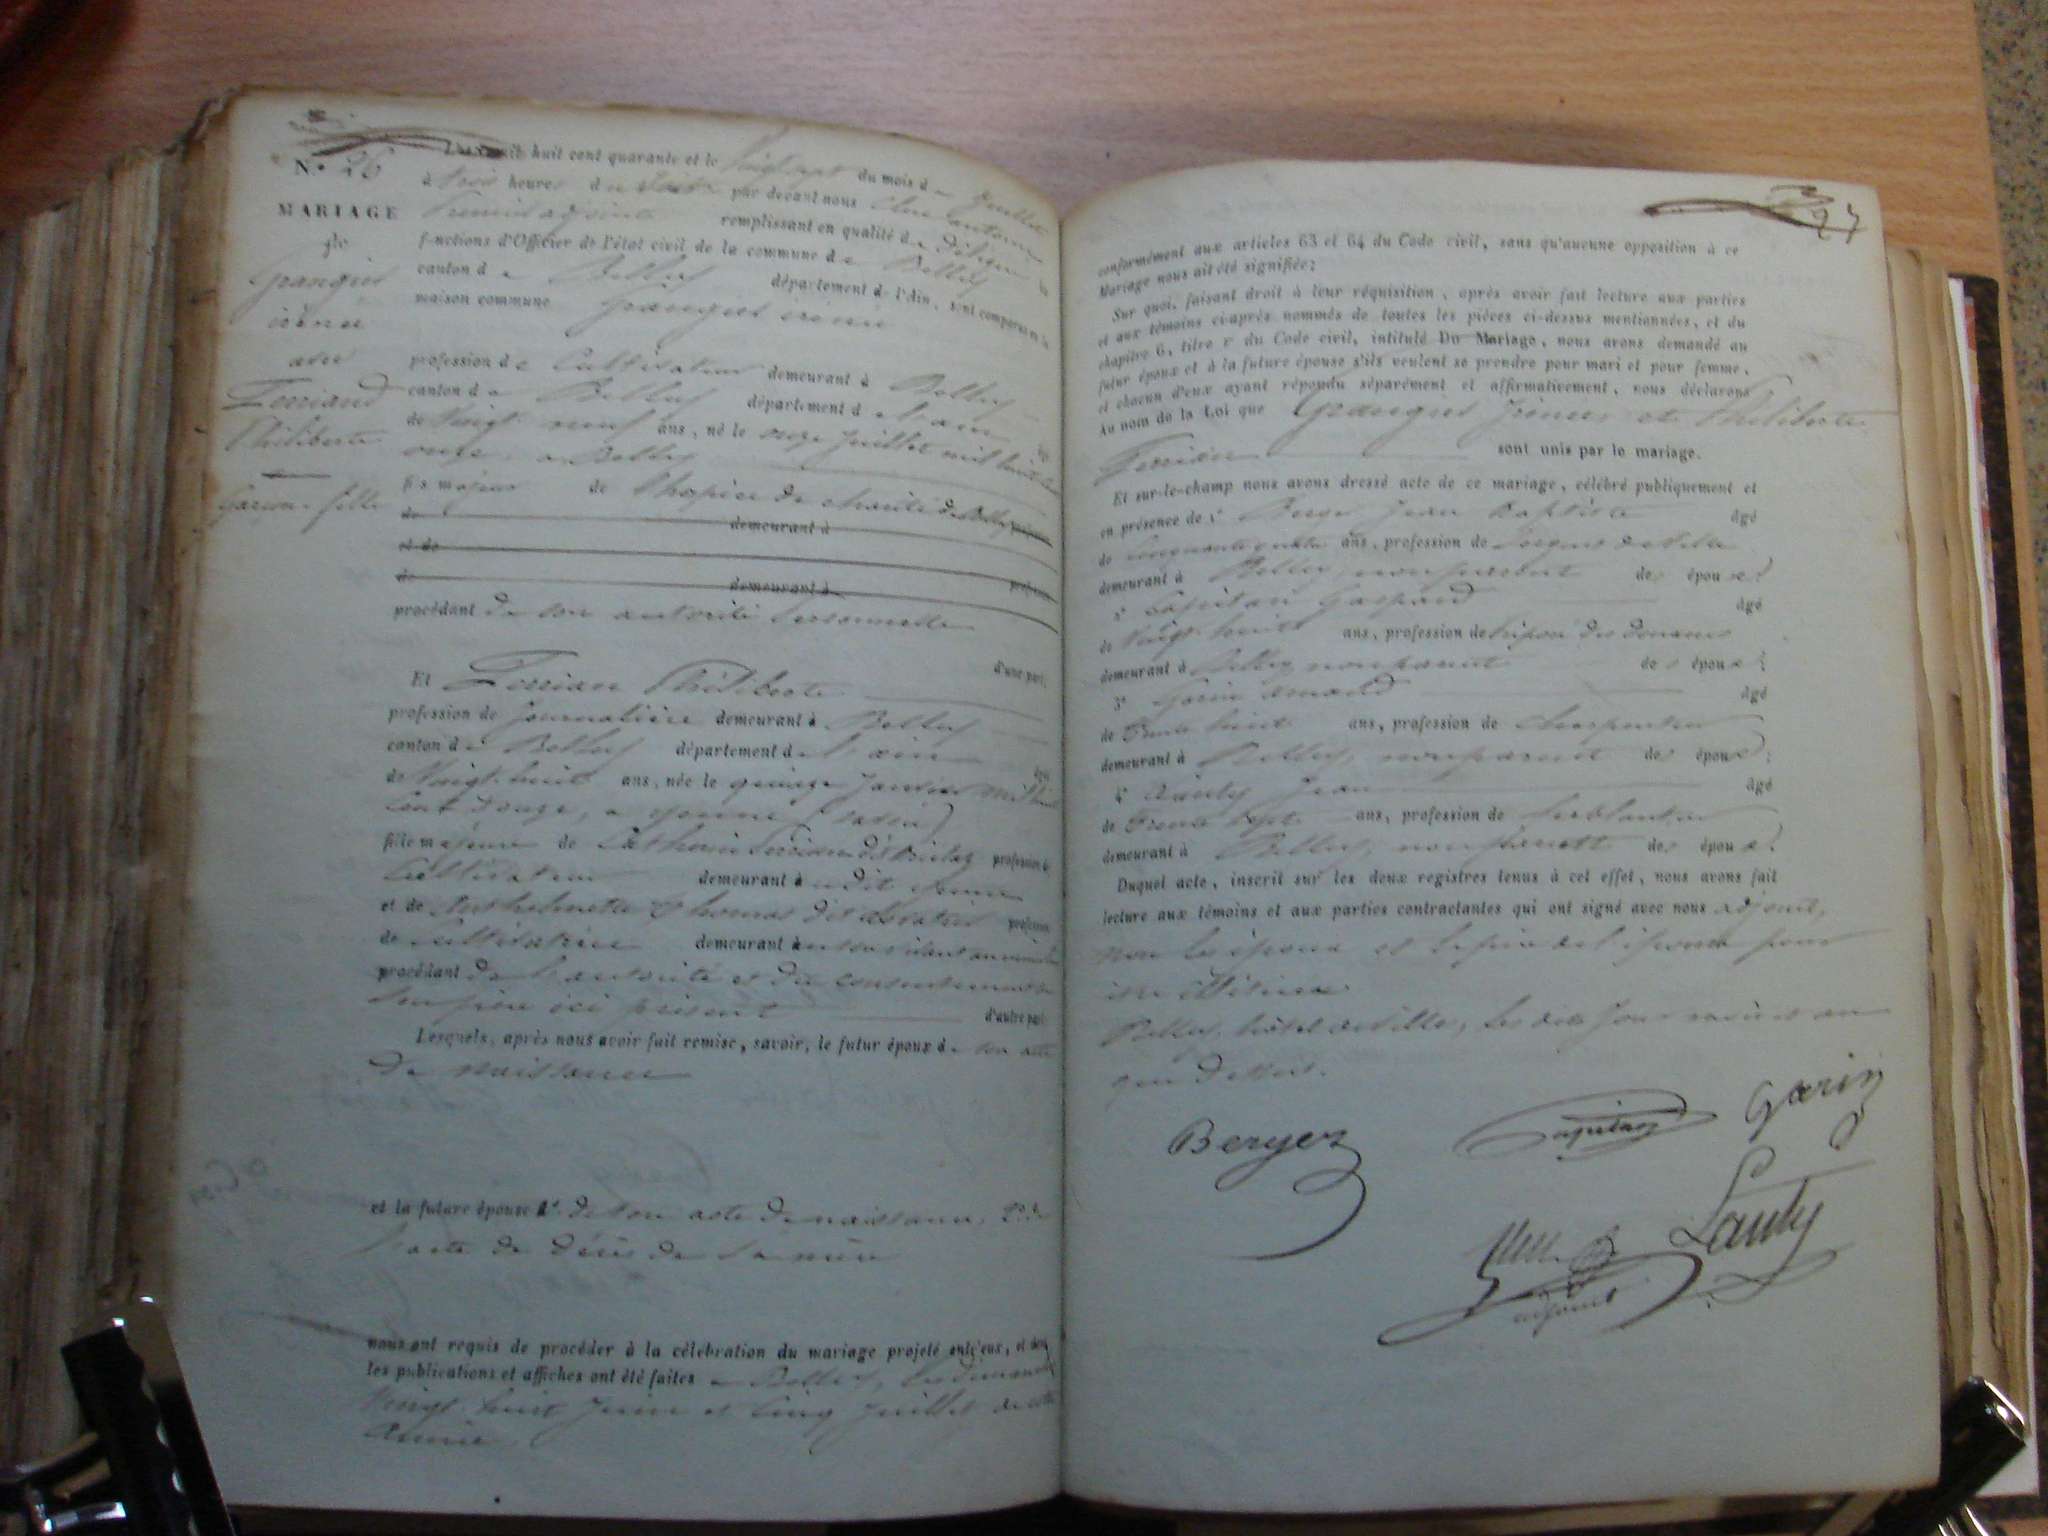 N.° 26
MARIAGE
de
Grangis
irénée
avec
Ferriand
Philiberte
Garçon - fille
L'an mil huit cent quarante et le Vingt sept du mois de Juillet
à trois heures du par devant nous
Premier adjoint remplissant en qualité de Délégué les
fonctions d'Officier de l'état civil de la commune de Belley
canton de Belley département de l'Ain, sont comparus en la
maison commune Grangis irénée
profession de Cultivateur demeurant à Belley
canton de Belley département de l'ain âgé
de Vingt neuf ans, né le onze juillet mil huit cent
onze, a Belley
fils majeur de l'hospice de charité de Belley profession
de demeurant à
et de
de demeurant à profession
procédant de son autorité personnelle
d'une part;
Et Ferrian Philiberte
profession de journalière demeurant à Belley
canton de Belley département de l'ain âgée
de Vingt huit ans, née le quinze Janvier mil huit
Cent Douze, a yenne (Savoie)
fille majeure de Ferrian dit profession de
Cultivateur demeurant à udit yenne
et de Anthelmette Thomas dit profession
de Cultivatrice demeurant à
procédant de l'autorité et du consentement de
Son père ici présent d'autre part.
Lesquels, après nous avoir fait remise, savoir, le futur époux de son acte
de naissance
et la future épouse 1.° de son acte de naissance, 2.° de
l'acte de décès de Sa mère
nous ont requis de procéder à la célébration du mariage projeté entr'eux, et dont
les publications et affiches ont été faites a Belley, les dimanches
Vingt huit Juin et Cinq Juillet de cette
année
27
conformément aux articles 63 et 64 du Code civil, sans qu'aucune opposition à ce
Mariage nous ait été signifiée;
Sur quoi, faisant droit à leur réquisition, après avoir fait lecture aux parties
et aux témoins ci-après nommés de toutes les pièces ci-dessus mentionnées, et du
chapitre 6, titre v du Code civil, intitulé Du Mariage, nous avons demandé au
futur époux et à la future épouse s'ils veulent se prendre pour mari et pour femme,
et chacun d'eux ayant répondu séparément et affirmativement, nous déclarons
Au nom de la Loi que Grangis Irénée et Philiberte
Ferrian sont unis par le mariage.
Et sur-le-champ nous avons dressé acte de ce mariage, célébré publiquement et
en présence de 1° Berger Jean Baptiste âgé
de Cinquante quatre ans, profession de Sergent de Ville
demeurant à Belley, non parent des époux;
2° Capitan Gaspard âgé
de Vingt huit ans, profession de préposé des douanes
demeurant à Belley non parent des époux;
3° Garin amand âgé
de Trente huit ans, profession de charpentier
demeurant à Belley, non parent des époux;
4° Lauty Jean âgé
de Trente sept ans, profession de ferblantier
demeurant à Belley, non parent des époux.
Duquel acte, inscrit sur les deux registres tenus à cet effet, nous avons fait
lecture aux témoins et aux parties contractantes qui ont signé avec nous adjoint,
non les époux et le père de l'épouse pour
être illitérés
Belley, hôtel de Ville, les dits jour mois et an
que dessus.
Berger
Capitan
Garin
Lauty
adjoint